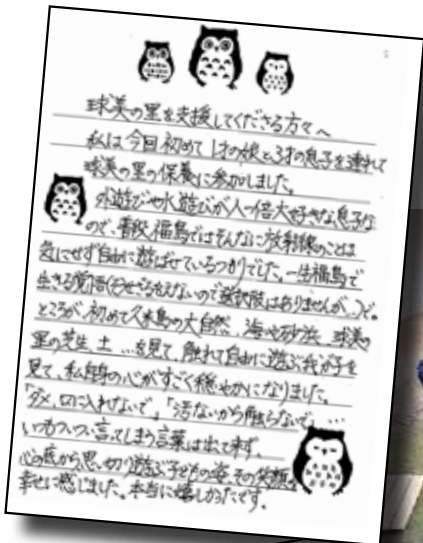 球美の里を支援してくださる方々へ
私は今回初めて1才の娘と3才の息子を連れて
球美の里の保養に参加しました。
外遊びや水遊びが人一倍大好きな息子な
ので、普段、福島ではそんなに放射線のことは
気にせず自由に遊ばせているつもりでした。一生福島で
生きる覚悟(そうせざるをえないので選択肢はありませんが…)で。
ところが、初めて久米島の大自然、海や砂浜、球美の
里の芝生、土…を見て、触れて自由に遊ぶ我が子を
見て、私自身の心がすごく穏やかになりました。
「ダメ、口に入れないで」「汚ないから触らないで」…
いつもついつい言ってしまう言葉は出て来ず、
心の底から思い切り遊ぶ子どもの姿、その笑顔を
幸せに感じました。本当に嬉しかったです。